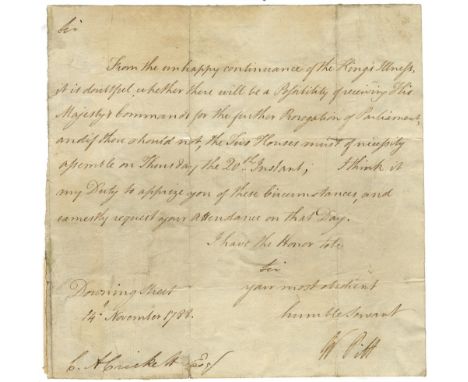 Sir
From the unhappy continuance of the King's Illness,
it is doubtful, whether there will be a Possibility of receiving His
Majesty's Commands for the further Prorogation of Parliament,
and if there should not, the Two Houses must of necessity
assemble on Thursday the 20th Instant; I think it
my Duty to apprize you of these Circumstances, and
earnestly request your Attendance on that Day.
I have the Honor to be
Sir
your most obedient
humble Servant
W Pitt
Downing Street
14th November 1788.
C. A Crickett Esqr